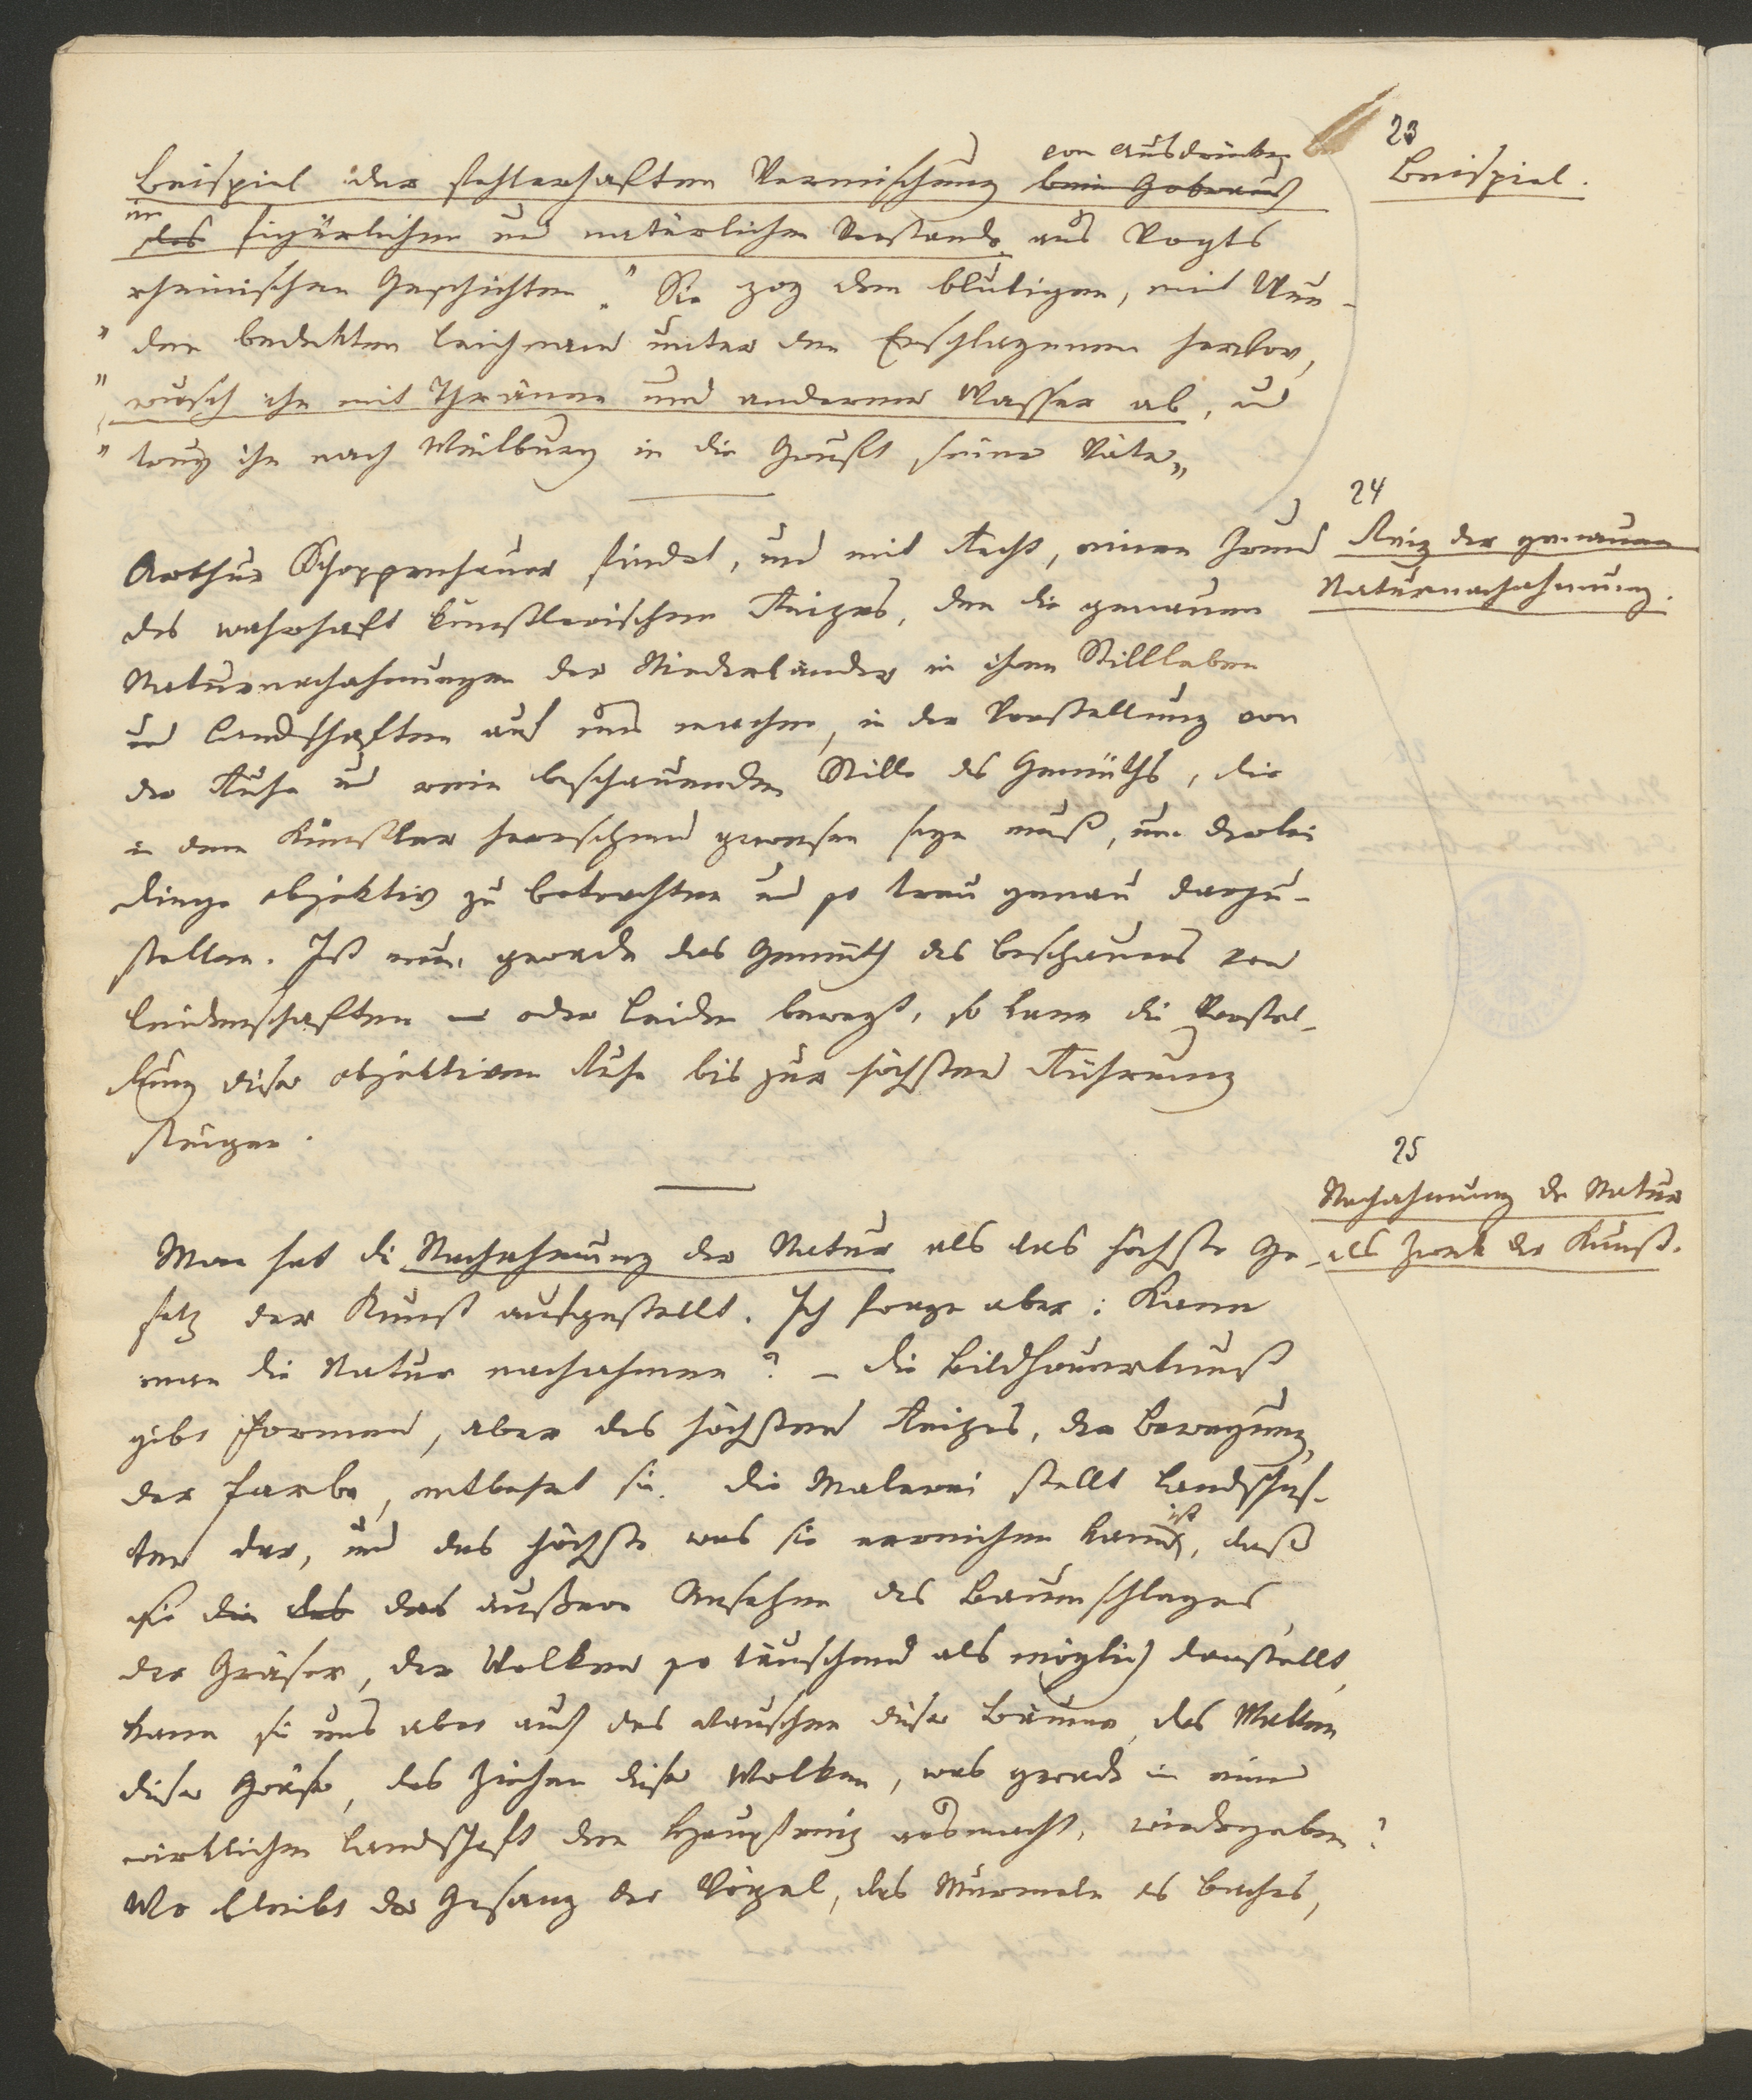 23
Beispiel.
Beispiel der fehlerhaften Vermischung von Ausdrücken beim Gebrauch
im des figürlichen und natürlichen Verstande aus Vogts
rheinischen Geschichten. " Sie zog den blutigen, mit Wun-
" den bedekten Leichnam unter den Erschlagenen hervor,
" wusch ihn mit Thränen und anderem Wasser ab, und
" trug ihn nach Weilburg in die Gruft seiner Väter„
24
Reiz der genauen
Naturnachahmung.
Arthur Schoppenhauer findet, und mit Recht, einen Grund
des wahrhaft künstlerischen Reizes, den die genauen
Naturnachahmungen der Niederländer in ihren Stillleben
und Landschaften auf uns machen, in der Vorstellung von
der Ruhe und rein beschauenden Stille des Gemüths, die
in dem Künstler herrschend gewesen seyn muß, um derlei
Dinge objektiv zu betrachten und so treu genau darzu-
stellen. Ist nun gerade das Gemüth des Beschauers von
Leidenschaften oder Leiden bewegt, so kann die Vorstel-
lung dieser objektiven Ruhe bis zur höchsten Rührung
steigen.
25
Nachahmung der Natur
als Zwek der Kunst.
Man hat die Nachahmung der Natur als das höchste Ge-
setz der Kunst aufgestellt. Ich frage aber: Kann
man die Natur nachahmen? – Die Bildhauerkunst
gibt Formen, aber des höchsten Reizes, der Bewegung,
der Farbe, entbehrt sie. Die Malerei stellt Landschaf-
ten dar, und das höchste was sie erreichen kann ist, daß
sie die das das äußere Ansehen des Baumschlages,
der Gräser, der Wolken so täuschend als möglich darstellt,
kann sie uns aber auch das Rauschen dieser Bäume, das Wallen
dieser Gräser, das Ziehen dieser Wolken, was gerade in einer
wirklichen Landschaft den Hauptreiz ausmacht, wiedergeben?
Wo bleibt der Gesang der Vögel, das Murmeln des Baches,